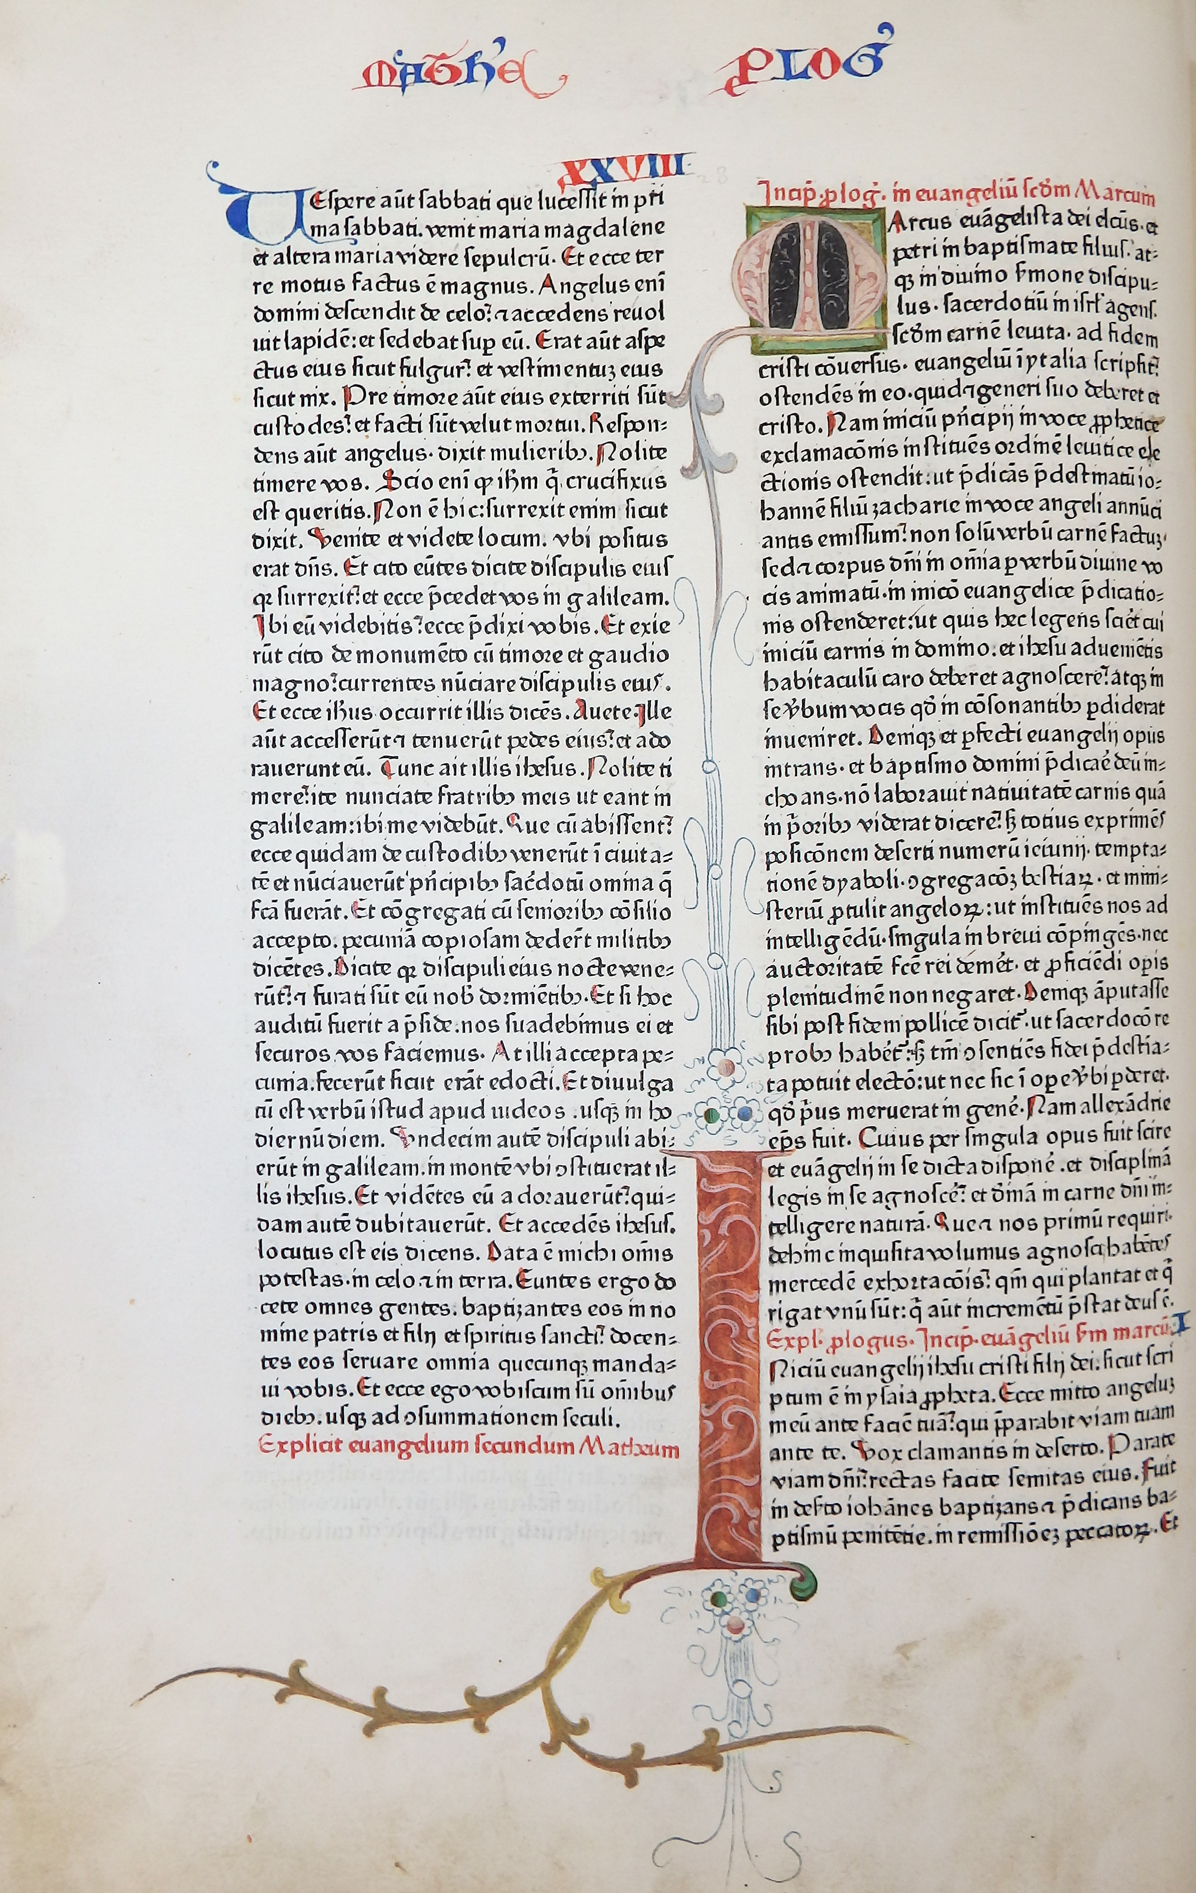 MATHE PLOG
XXVIII
VEspere aūt sabbati que lucessit in pri
ma sabbati. venit maria magdalene
et altera maria videre sepulcrū. Et ecce ter
re motus factus ē magnus. Angelus enī
domini descendit de celo: ⁊ accedens reuol
uit lapidē: et sedebat sup eū. Erat aūt aspe
ctus eius sicut fulgur: et vestimentuꝫ eius
sicut nix. Pre timore aūt eius exterriti sūt
custodes: et facti sūt velut mortui. Respon⸗
dens aūt angelus. dixit mulieribꝰ. Nolite
timere vos. Scio enī ꝙ ihm̄ q̄ crucifixus
est queritis. Non ē hic: surrexit enim sicut
dixit. Venite et videte locum. vbi positus
erat dn̄s. Et cito eūtes dicite discipulis eius
qꝛ surrexit: et ecce p̄cedet vos in galileam.
Ibi eū videbitis: ecce p̄dixi vobis. Et exie
rūt cito de monumēto cū timore et gaudio
magno: currentes nūciare discipulis eius.
Et ecce ihus occurrit illis dicēs. Auete. Ille
aūt accesserūt ⁊ tenuerūt pedes eius: et ado
rauerunt eū. Tunc ait illis ihesus. Nolite ti
mere: ite nunciate fratribꝰ meis ut eant in
galileam: ibi me videbūt. Que cū abissent:
ecce quidam de custodibꝰ venerūt ī ciuita⸗
tē et nūciauerūt pn̄cipibꝰ sac̄dotū omnia q̄
fcā fuerāt. Et cōgregati cū senioribꝰ cōsilio
accepto. pecuniā copiosam deder̄t militibꝰ
dicētes. Dicite qꝛ discipuli eius nocte vene⸗
rūt: ⁊ furati sūt eū nob̄ dormiētibꝰ. Et si hoc
auditū fuerit a p̄side. nos suadebimus ei et
securos vos faciemus. At illi accepta pe⸗
cunia. fecerūt sicut erāt edocti. Et diuulga
tū est verbū istud apud iudeos. usqꝫ in ho
diernū diem. Vndecim autē discipuli abi⸗
erūt in galileam. in montē vbi ꝯstituerat il⸗
lis ihesus. Et vidētes eū adorauerūt: qui⸗
dam autē dubitauerūt. Et accedēs ihesus.
locutus est eis dicens. Data ē michi om̄is
potestas. in celo ⁊ in terra. Euntes ergo do
cete omnes gentes. baptizantes eos in no
mine patris et filij et spiritus sancti: docen⸗
tes eos seruare omnia quecunqꝫ manda⸗
ui vobis. Et ecce ego vobiscum sū om̄ibus
diebꝰ. usqꝫ ad ꝯsummationem seculi.
Explicit euangelium secundum Matheum
Incip̄. ꝓlog̉. in euangeliū scd̄m Marcum
MArcus euāgelista dei elcūs. et
petri in baptismate filius. at⸗
qꝫ in diuino s̄mone discipu⸗
lus. sacerdotiū in isrl̄ agens.
scd̄m carnē leuita. ad fidem
cristi cōuersus. euangeliū ī ytalia scripsit:
ostendēs in eo. quid ⁊ generi suo deberet et
cristo. Nam iniciū pn̄cipij in voce ꝓphetice
exclamacōnis instituēs ordinē leuitice ele
ctionis ostendit: ut p̄dicās p̄destinatū io⸗
hannē filiū zacharie in voce angeli annūci
antis emissum: non solū verbū carnē factuꝫ.
sed ⁊ corpus dn̄i in om̄ia ꝑ verbū diuine vo
cis animatū. in inicō euangelice p̄dicatio⸗
nis ostenderet: ut quis hec legens sciēt cui
iniciū carnis in domino. et ihesu aduenietis
habitaculū caro deberet agnoscere: atqꝫ in
se v̄bum vocis qd̄ in cōsonantibꝰ ꝑdiderat
inueniret. Deniqꝫ et ꝑfecti euangelij opus
intrans. et baptismo domini p̄dicac̄ deū in⸗
choans. nō laborauit natiuitatē carnis quā
in p̄oribꝰ viderat dicere: sꝫ totius exprimēs
posicōnem deserti numerū ieiunij. tempta⸗
tionē dyaboli. ꝯgregacōꝫ bestiaꝝ. et mini⸗
steriū ꝓtulit angeloꝝ: ut instituēs nos ad
intelligēdū. singula in breui cōpingēs. nec
auctoritatē fcē rei demēt. et ꝓficiēdi opis
plenitudinē non negaret. Deniqꝫ āputasse
sibi post fidem pollicē dicit̉. ut sacerdocō re
probꝰ habēt̉: sꝫ tm̄ ꝯsentiēs fidei p̄destia⸗
ta potuit electō: ut nec sic ī ope v̄bi ꝑderet.
qd̄ p̄us meruerat in genē. Nam allexādrie
ep̄s fuit. Cuius per singula opus fuit scire
et euāgelij in se dicta disponē. et disciplinā
legis in se agnoscē: et diuinā in carne dn̄i in⸗
telligere naturā. Que ⁊ nos primū requiri.
dehinc inquisita volumus agnosci habētes
mercedē exhortacōis: qm̄ qui plantat et q̄
rigat vnū sūt: q̄ aūt incremētū p̄stat deus ē.
Expl. ꝓlogus. Incip̄. euāgeliū s̄m marcū.
INiciū euangelij ihesu cristi filij dei. sicut scri
ptum ē in ysaia ꝓpheta. Ecce mitto angeluꝫ
meū ante faciē tuā: qui p̄parabit viam tuam
ante te. Vox clamantis in deserto. Parate
viam dn̄i: rectas facite semitas eius. Fuit
in des̄to iohānes baptizans ⁊ p̄dicans ba⸗
ptismū penitētie. in remissiōeꝫ peccatoꝝ. Et